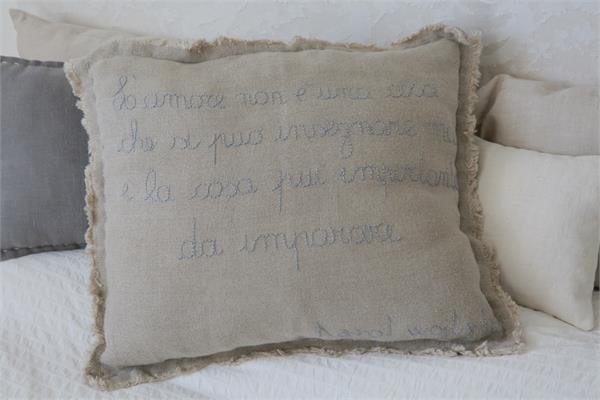 L'amore non è una cosa
che si può insegnare ma
è la cosa più importante
da imparare
Karol